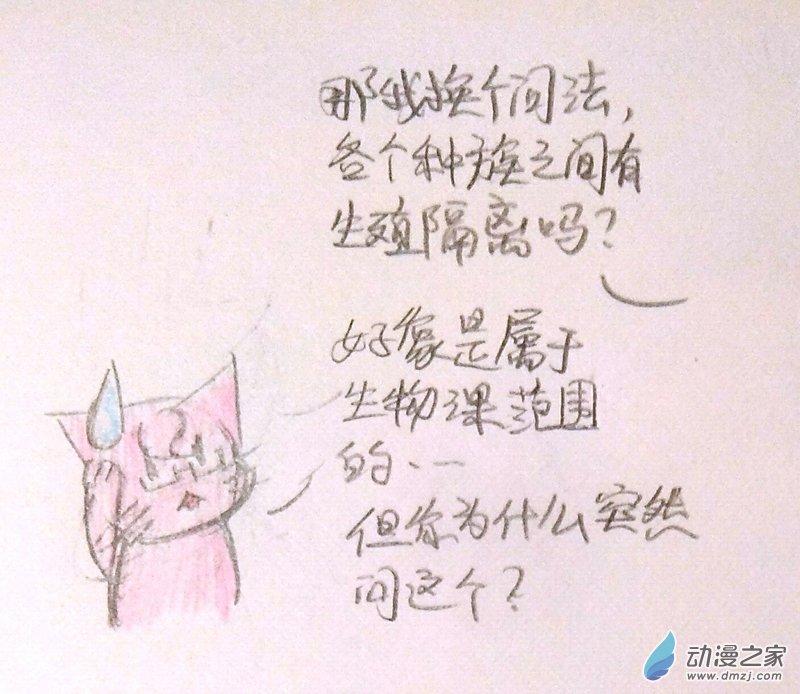 那我换个问法，
各个种族之间有
生殖隔离吗？
好像是属于
生物课范围
的．一
但你为什么突然
问这个？
动漫之家
www.dmzj.com